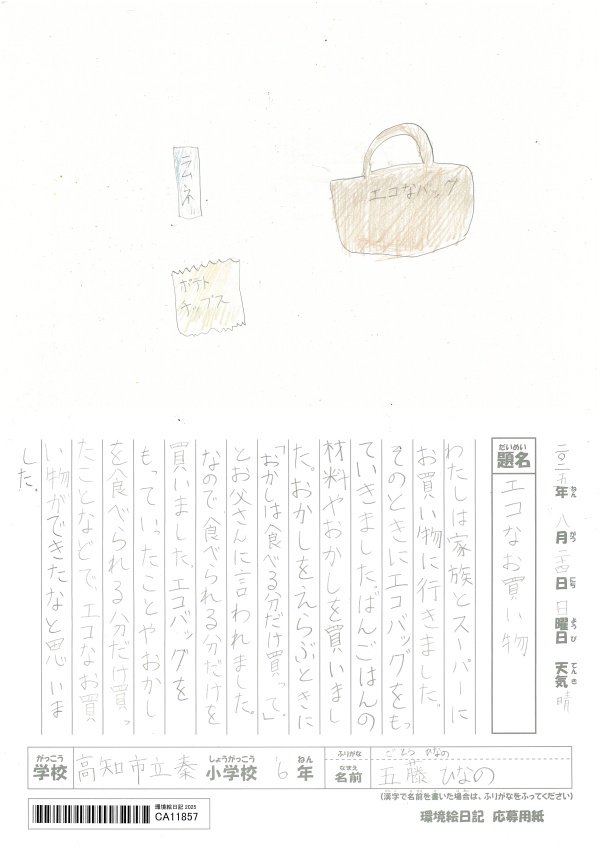 ラムネ
エコなバッグ
ポテト
チップス
二〇二五年 八月二四日 日曜日 天気 晴
ねん がつ にち ようび てんき
だいめい
題名 エコなお買い物
わたしは家族とスーパーに
お買い物に行きました。
そのときにエコバッグをもっ
ていきました。ばんごはんの
材料やおかしを買いまし
た。おかしをえらぶときに
「おかしは食べる分だけ買って。」
とお父さんに言われました。
なので食べられる分だけを
買いました。エコバッグを
もっていったことやおかし
を食べられる分だけ買っ
たことなどで、エコなお買
い物ができたなと思いま
した。
がっこう しょうがっこう ねん
学校 高知市立秦 小学校 6年
ふりがな ごとう ひなの
なまえ
名前 五藤 ひなの
(漢字で名前を書いた場合は、ふりがなをふってください)
環境絵日記 2025
CA11857
環境絵日記 応募用紙